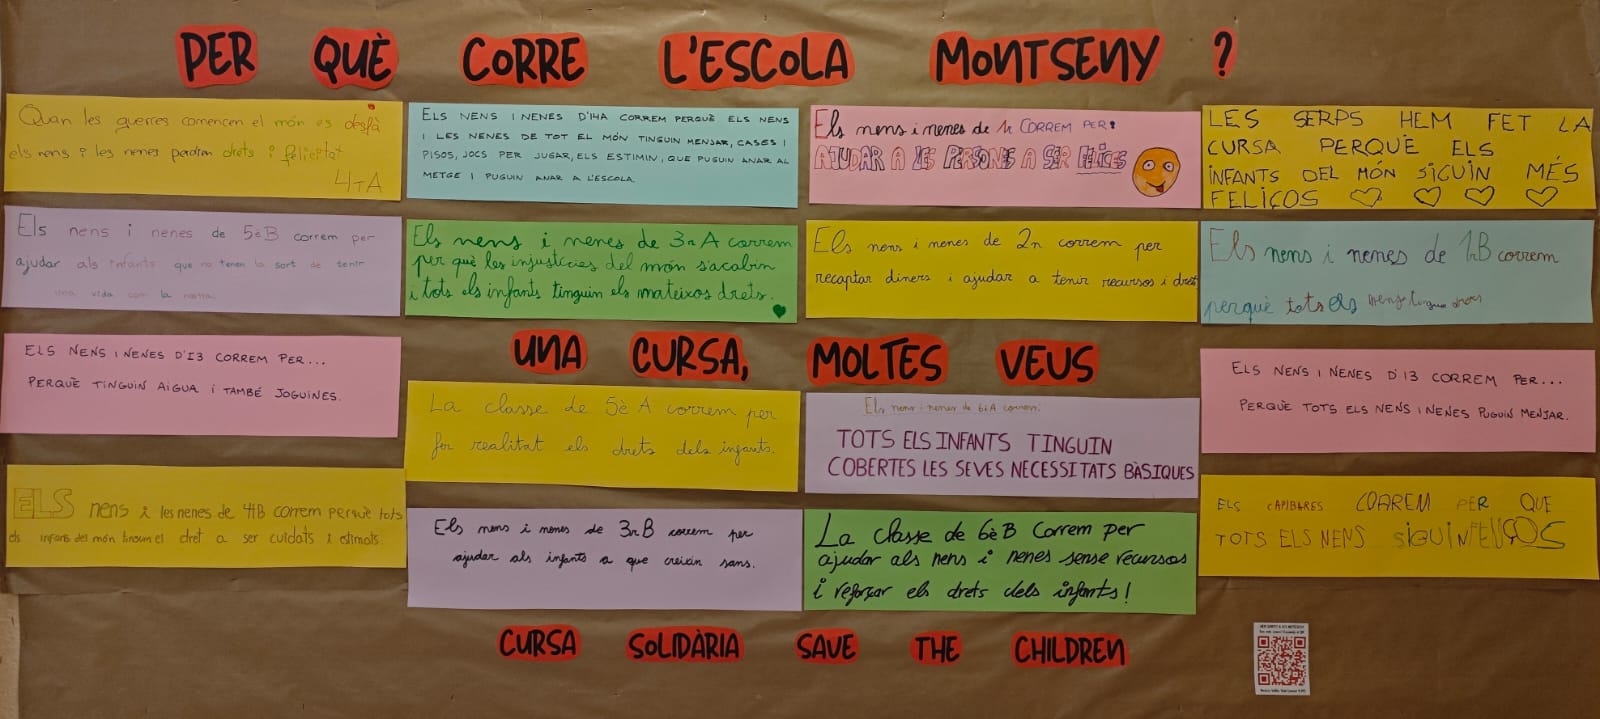 PER QUÈ CORRE L'ESCOLA MONTSENY ?
Quan les guerres comencen el món es desfà
els nens i les nenes perdren drets i felicitat
4rt A
ELS NENS I NENES D'I4A CORREM PERQUÈ ELS NENS
I LES NENES DE TOT EL MÓN TINGUIN MENJAR, CASES I
PISOS, JOCS PER JUGAR, ELS ESTIMIN, QUE PUGUIN ANAR AL
METGE I PUGUIN ANAR A L'ESCOLA
Els nens i nenes de 1r CORREM PER:
AJUDAR A LES PERSONES A SER FELICES
LES SERPS HEM FET LA
CURSA PERQUÈ ELS
INFANTS DEL MÓN SIGUIN MÉS
FELIÇOS
Els nens i nenes de 5èB correm per
ajudar als infants que no tenen la sort de tenir
una vida com la nostra.
Els nens i nenes de 3r A correm
per què les injustícies del món s'acabin
i tots els infants tinguin els mateixos drets.
Els nens i nenes de 2n correm per
recaptar diners i ajudar a tenir recursos i drets
Els nens i nenes de 1rB correm
perquè tots els nens tinguin drets
ELS NENS I NENES D'I3 CORREM PER...
PERQUÈ TINGUIN AIGUA I TAMBÉ JOGUINES.
UNA CURSA, MOLTES VEUS
La classe de 5è A correm per
fer realitat els drets dels infants.
Els nens i nenes de 6èA correm:
TOTS ELS INFANTS TINGUIN
COBERTES LES SEVES NECESSITATS BÀSIQUES
ELS NENS I NENES D'I3 CORREM PER...
PERQUÈ TOTS ELS NENS I NENES PUGUIN MENJAR.
ELS nens i les nenes de 4tB correm perquè tots
els infants del món tinguin el dret a ser cuidats i estimats.
Els nens i nenes de 3r B correm per
ajudar als infants a que creixin sans.
La classe de 6è B Correm per
ajudar als nens i nenes sense recursos
i reforçar els drets dels infants!
ELS CAPIBARES CORREM PER QUE
TOTS ELS NENS SIGUIN FELIÇOS
CURSA SOLIDÀRIA SAVE THE CHILDREN